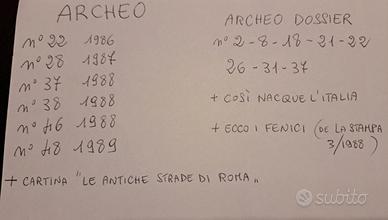 ARCHEO
nº 22 1986
nº 28 1987
nº 37 1988
nº 38 1988
nº 46 1988
nº 48 1989
+ CARTINA "LE ANTICHE STRADE DI ROMA"
ARCHEO DOSSIER
nº 2-8-18-21-22
26-31-37
+ COSÌ NACQUE L'ITALIA
+ ECCO I FENICI (DE LA STAMPA
3/1988)
subito